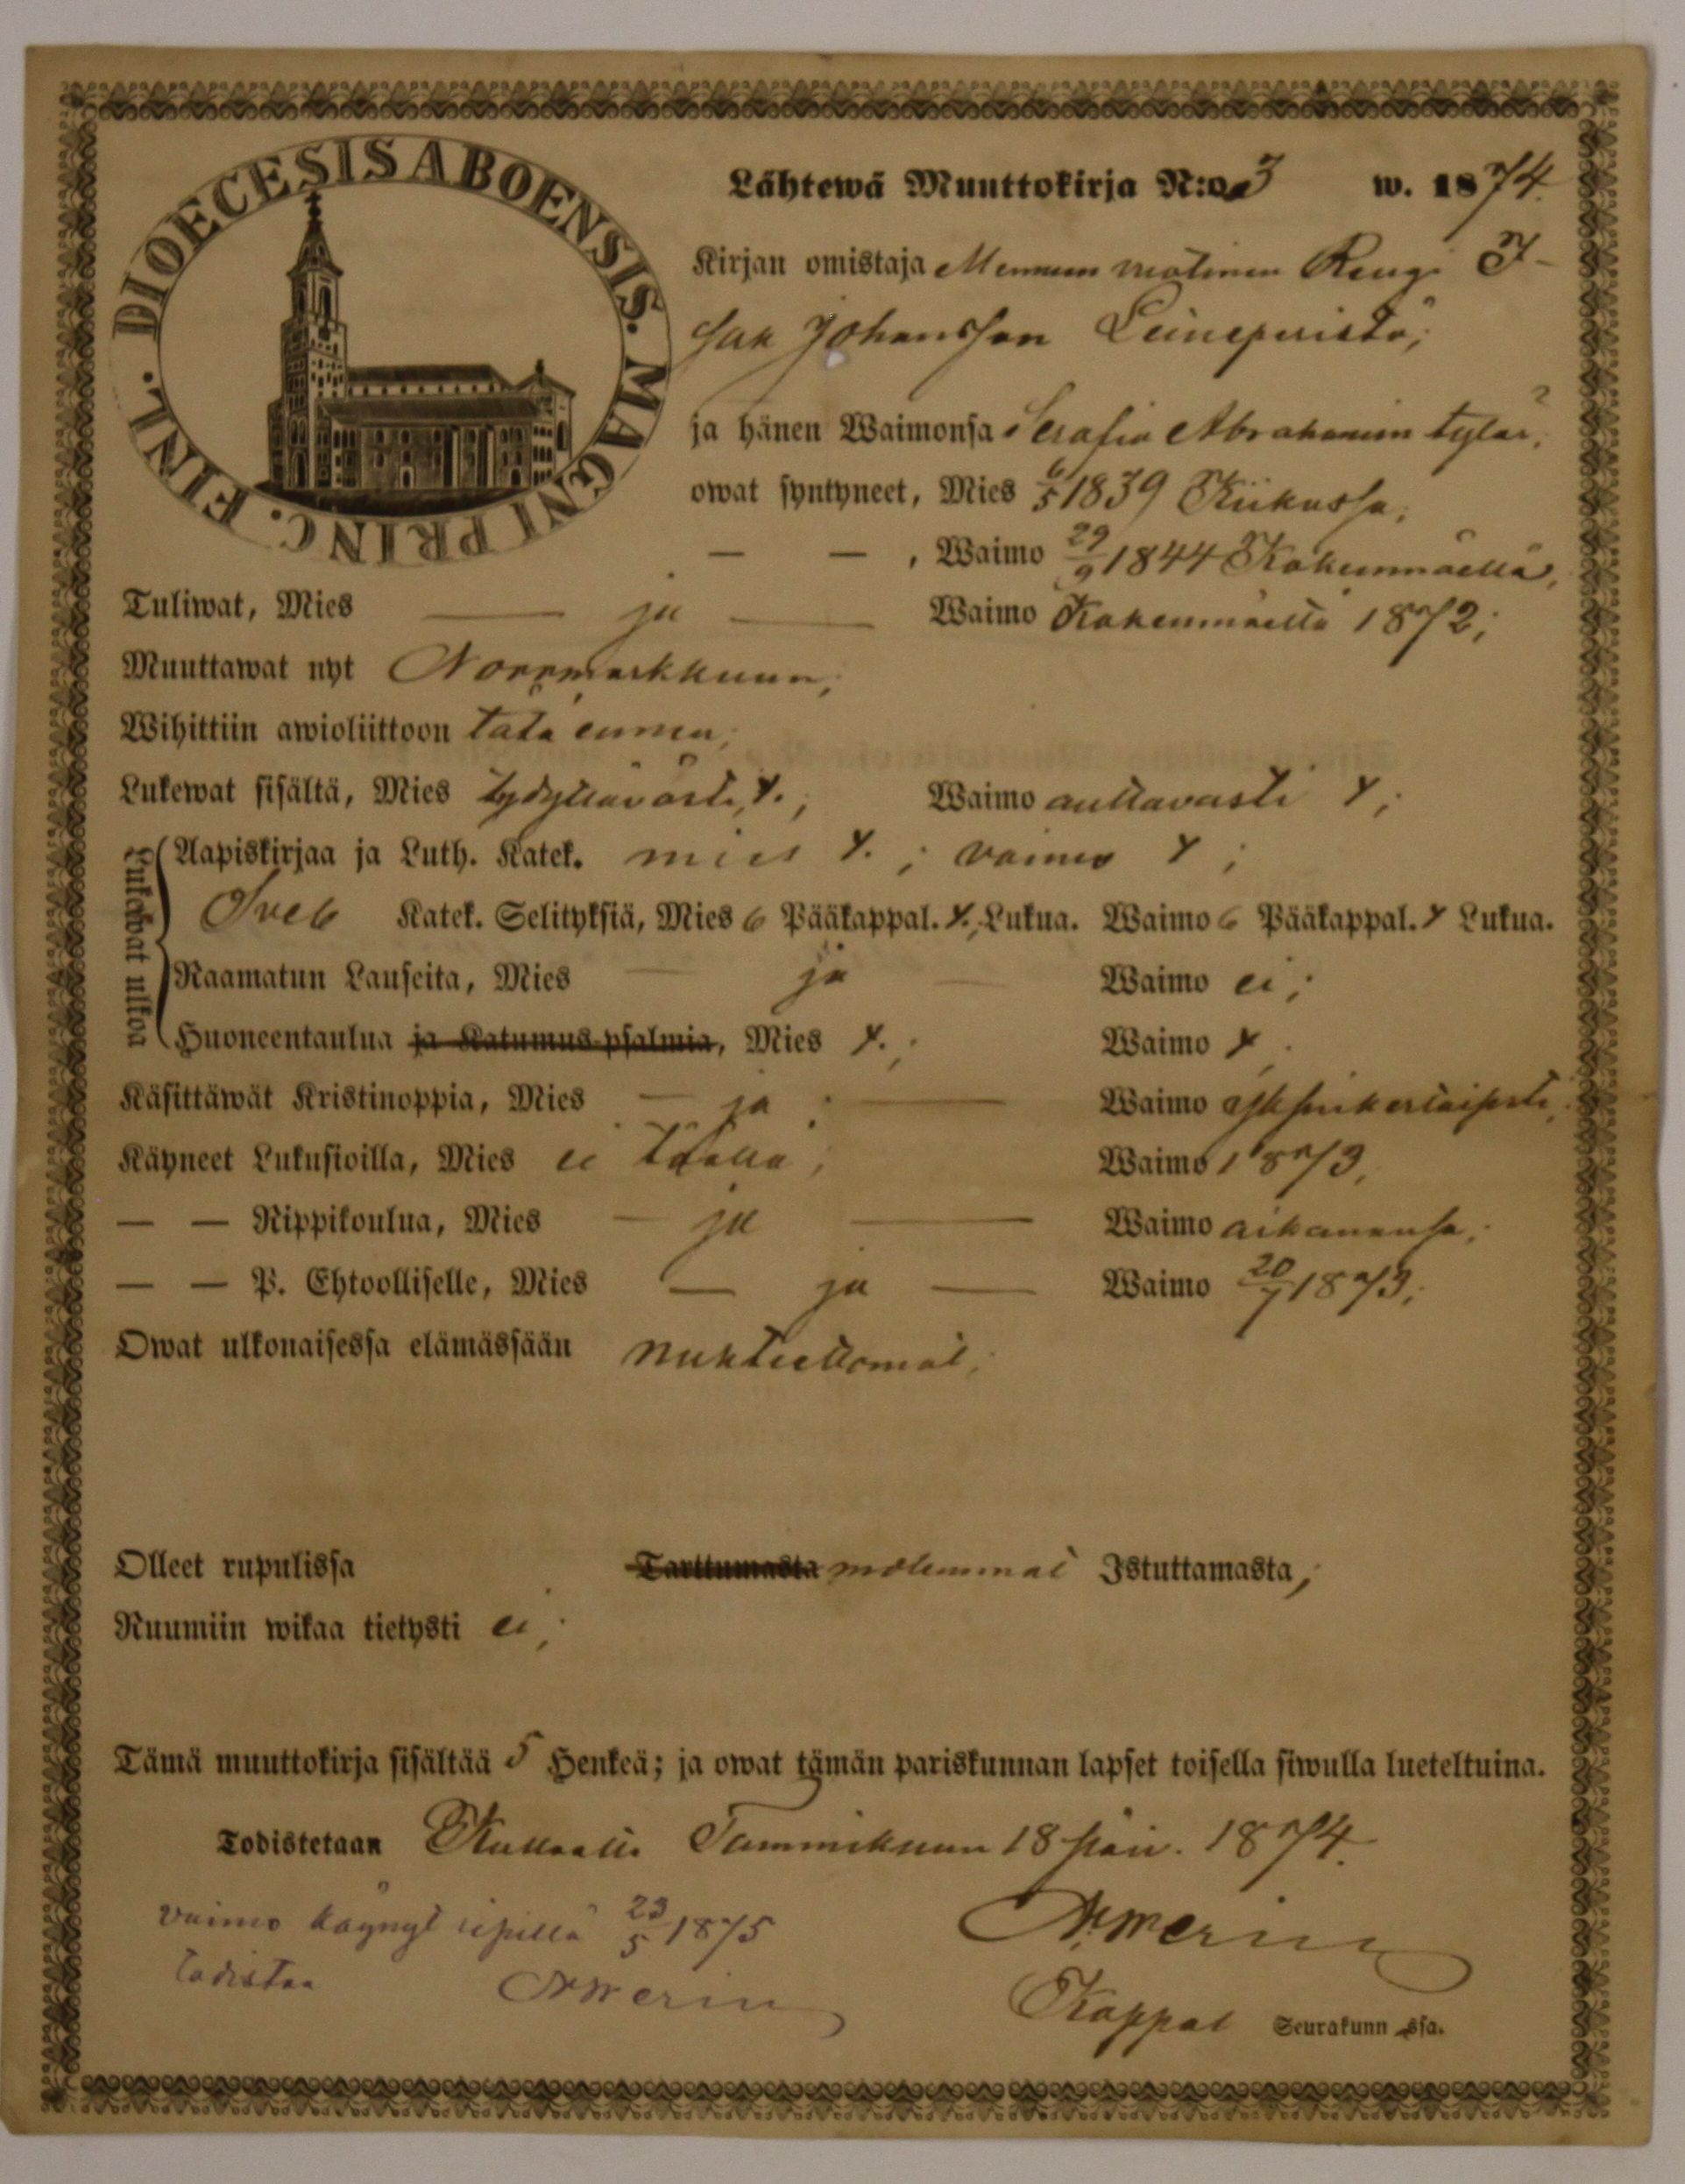 DIOECESIS ABOENSIS. MAGNI PRINC. FINL.
Lähtewä Muuttokirja N:o 3 w. 1874.
Kirjan omistaja Rengi I-
sak Johansson Leineperistä;
ja hänen Waimonsa Serafia Abrahamin tytär;
owat syntyneet, Mies 6/5 1839 Kiikassa;
— — , Waimo 29/9 1844 Kokemmäellä,
Tuliwat, Mies — ja — Waimo Kokenmäeltä 1872;
Muuttawat nyt Norrmarkkuun;
Wihittiin awioliittoon tätä ennen;
Lukewat sisältä, Mies tydyttävästi, Y.; Waimo auttavasti Y;
Lukewat ulkoa
Aapiskirjaa ja Luth. Katek. mies Y.; vaimo Y;
Sveb Katek. Selityksiä, Mies 6 Pääkappal. Y.; Lukua. Waimo 6 Pääkappal. Y Lukua.
Raamatun Lauseita, Mies — ja — Waimo ei;
Huoneentaulua ja Katumus-psalmia, Mies Y.; Waimo Y;
Käsittäwät Kristinoppia, Mies — ja — Waimo yksinkertaisesti;
Käyneet Lukusioilla, Mies ei täällä; Waimo 1873,
— — Rippikoulua, Mies — ja — Waimo aikanansa;
— — P. Ehtoolliselle, Mies — ja — Waimo 20/7 1873;
Owat ulkonaisessa elämässään nuhteettomat;
Olleet rupulissa Tarttumasta molemmat Istuttamasta;
Ruumiin wikaa tietysti ei;
Tämä muuttokirja sisältää 5 Henkeä; ja owat tämän pariskunnan lapset toisella siwulla lueteltuina.
Todistetaan Kullaalla Tammikuun 18 päiv. 1874.
vaimo käynyt ripillä 23/5 1875
todistaa
Kappal Seurakunn ssa.